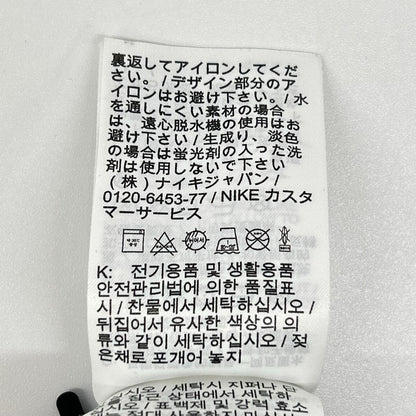 裏返してアイロンしてくだ
さい。/ デザイン部分のア
イロンはお避け下さい。/ 水
を通しにくい素材の場合
は、遠心脱水機の使用はお
避け下さい / 生成り、淡色
の場合は蛍光剤の入った洗
剤は使用しないで下さい
(株) ナイキジャパン /
0120-6453-77 / NIKE カスタ
マーサービス
K: 전기용품 및 생활용품
안전관리법에 의한 품질표
시 / 찬물에서 세탁하십시오 /
뒤집어서 유사한 색상의 의
류와 같이 세탁하십시오 / 젖
은채로 포개어 놓지
마십시오 / 세탁시 지퍼나 단